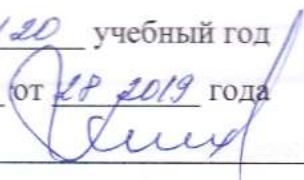 /20 учебный год
от 28 2019 года